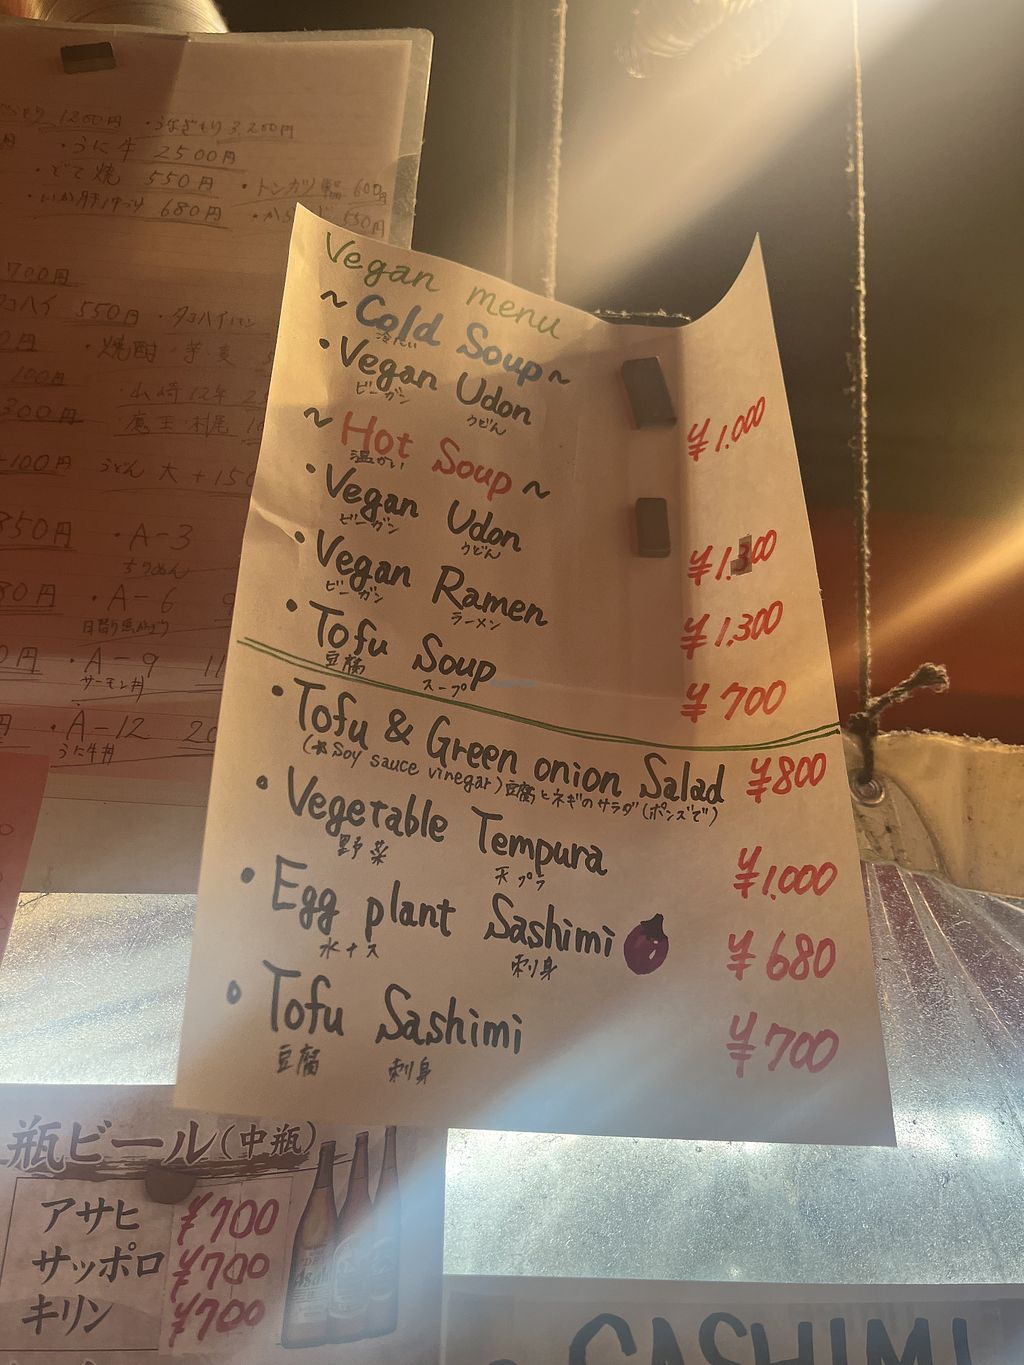 1200円 ・うなぎもり 3,200円
・うに牛 2500円
・どて焼 550円 ・トンカツ 600円
680円 550円
700円
550円 ・タコハイ
・焼酎 芋・麦
100円 山崎12年
300円 魔王
+100円 うどん 大 +150
350円 ・A-3
80円 ・A-6 9
・A-9 11
サーモン丼
・A-12 20
うに牛丼
Vegan menu
~Cold Soup~
冷たい
・Vegan Udon ¥1.000
ビーガン うどん
~Hot Soup~
温かい
・Vegan Udon ¥1.300
ビーガン うどん
・Vegan Ramen ¥1,300
ビーガン ラーメン
・Tofu Soup ¥700
豆腐 スープ
・Tofu & Green onion Salad ¥800
(※Soy sauce vinegar) 豆腐とネギのサラダ(ポンズで)
・Vegetable Tempura ¥1.000
野菜 天プラ
・Egg plant Sashimi ¥680
水ナス 刺身
・Tofu Sashimi ¥700
豆腐 刺身
瓶ビール(中瓶)
アサヒ ¥700
サッポロ ¥700
キリン ¥700
Asahi
SASHIMI